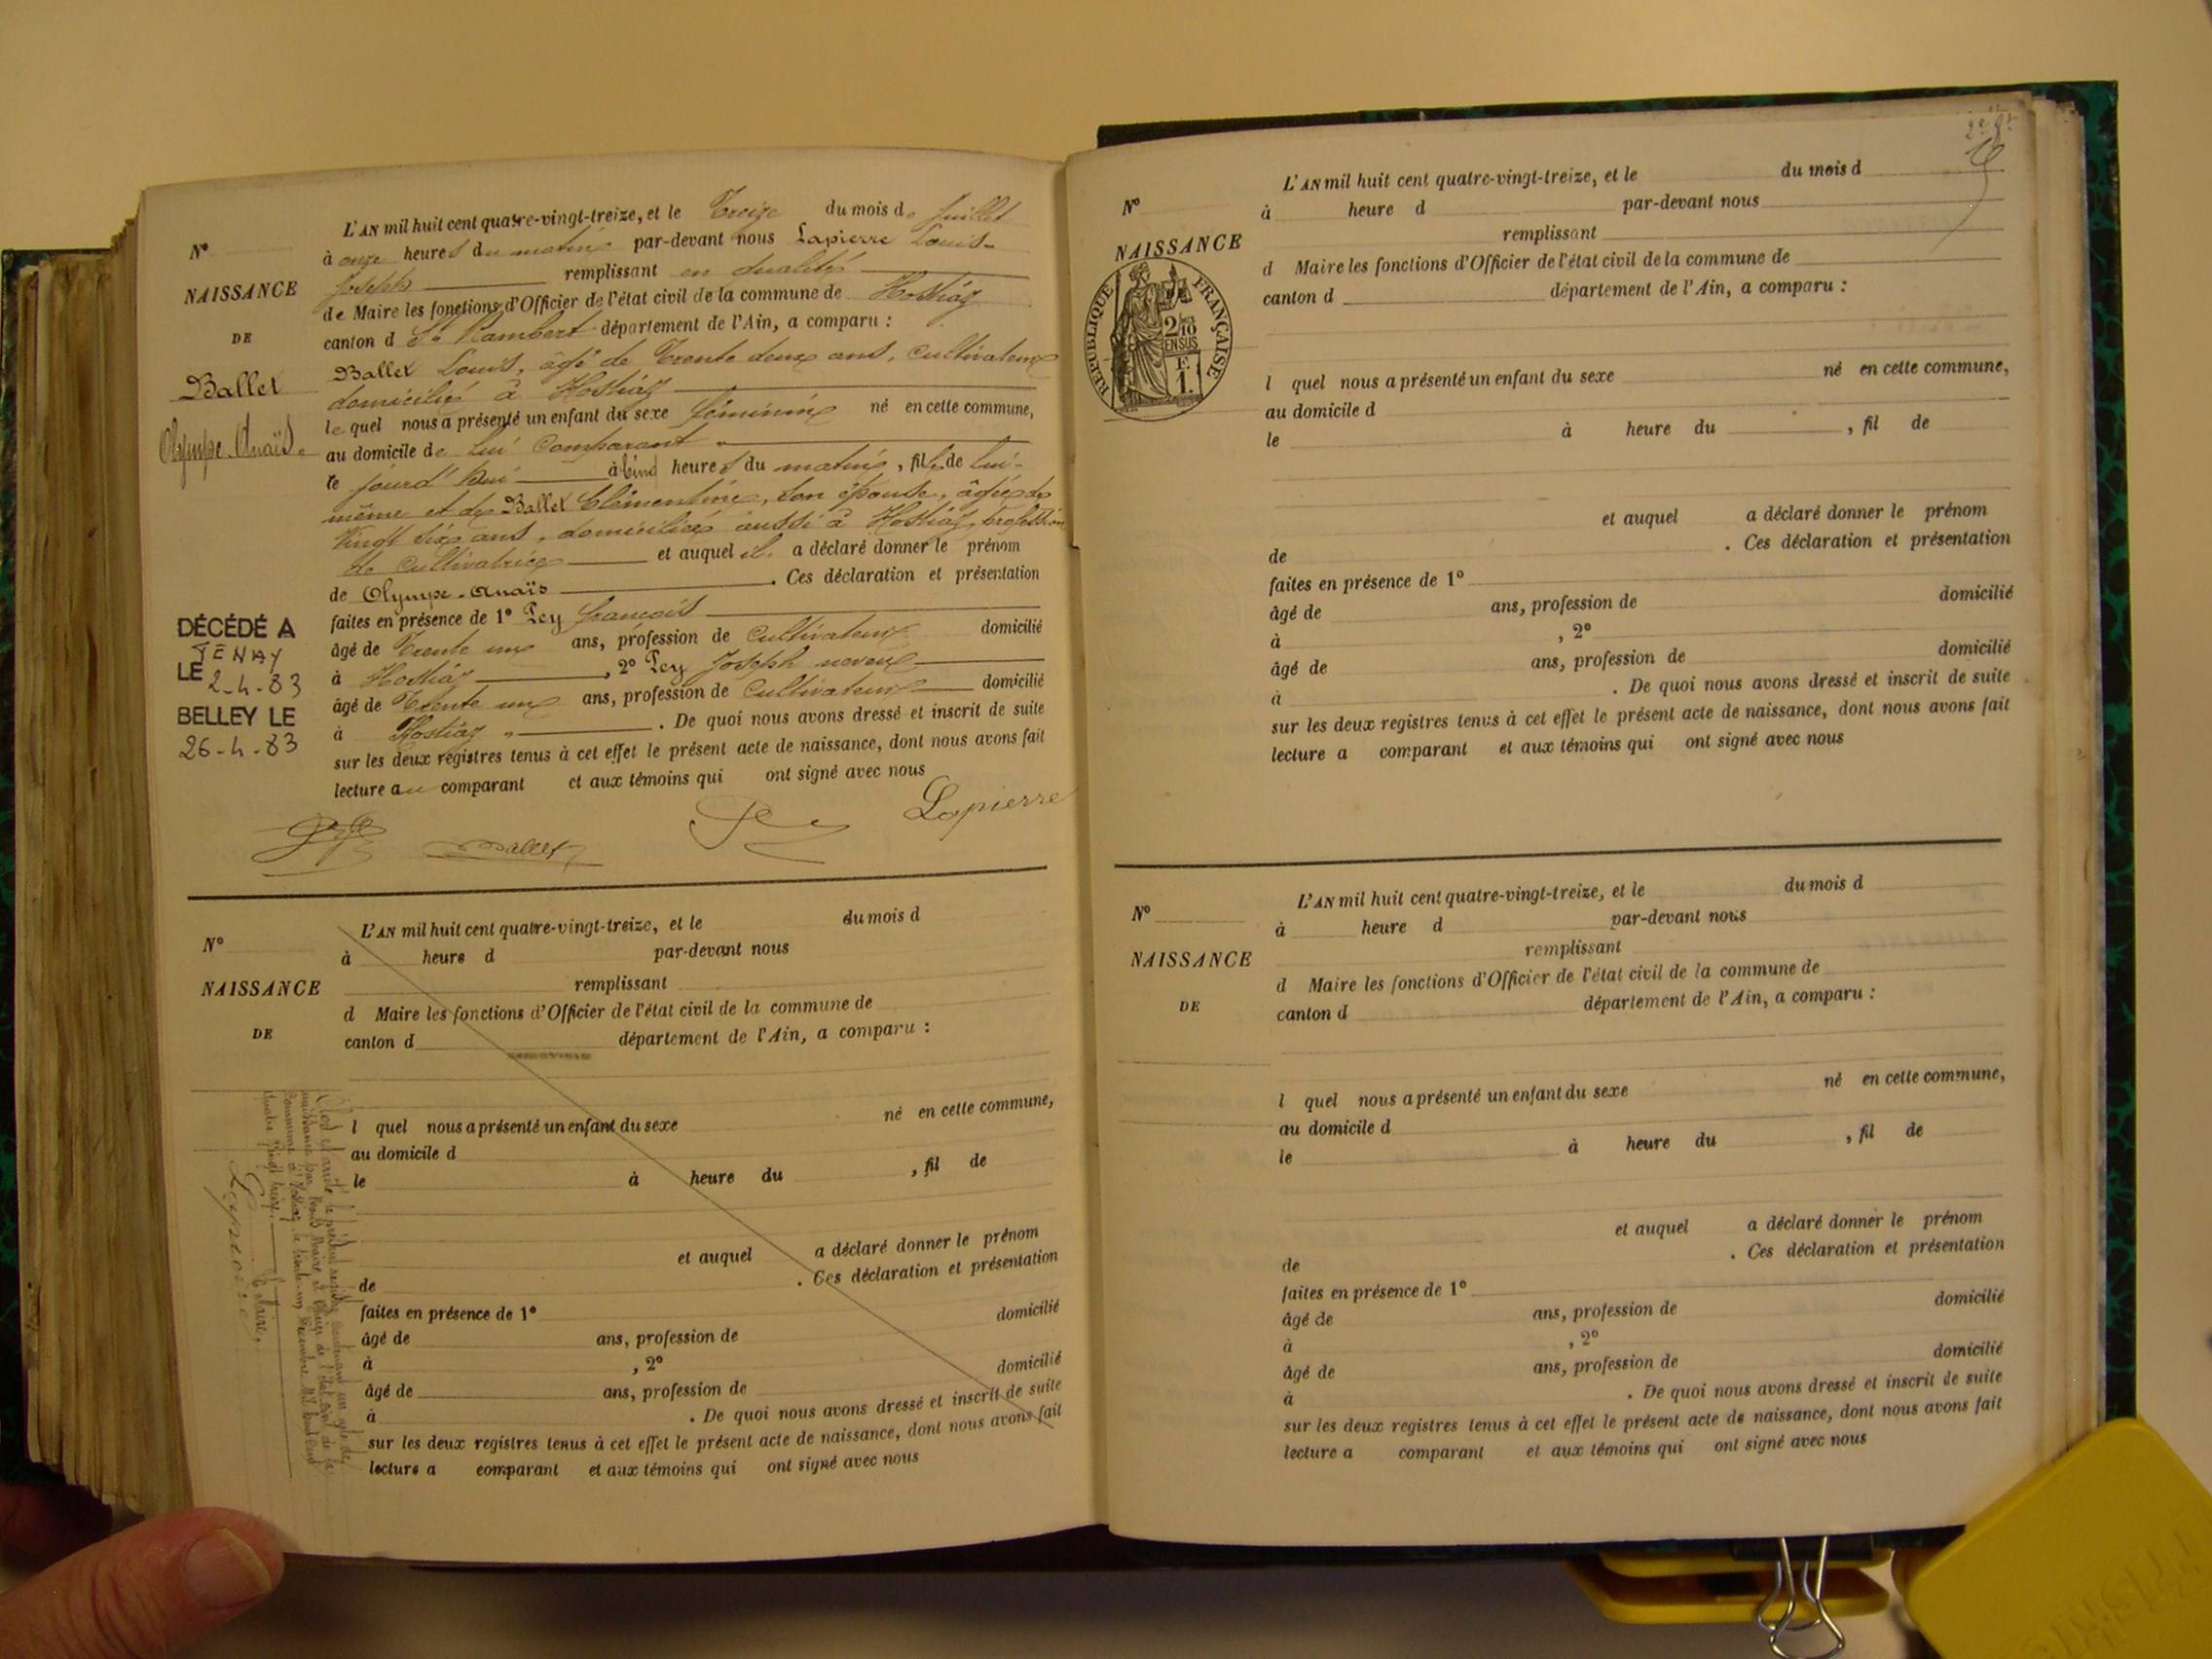 L'AN mil huit cent quatre-vingt-treize, et le Treize du mois de Juillet
N°
à onze heures du matin par-devant nous Lapierre Louis-
NAISSANCE
Joseph remplissant en qualité
de Maire les fonctions d'Officier de l'état civil de la commune de Hostiaz
DE
canton d St Rambert département de l'Ain, a comparu :
Ballet
Ballet Louis, âgé de Trente deux ans, Cultivateur
domicilié à Hostiaz
Olympe-Anaïs.
le quel nous a présenté un enfant du sexe féminin né en cette commune,
au domicile de lui Comparant
le jourd'hui à cinq heures du matin, fille de lui-
même et de Ballet Clémentine, son épouse, âgée de
Vingt six ans, domiciliée aussi à Hostiaz, profession
de Cultivatrice et auquel il a déclaré donner le prénom
de Olympe-Anaïs . Ces déclaration et présentation
faites en présence de 1° Pey François
âgé de Trente un ans, profession de Cultivateur domicilié
à Hostiaz , 2° Pey Joseph neveu
âgé de Trente un ans, profession de Cultivateur domicilié
à Hostiaz . De quoi nous avons dressé et inscrit de suite
sur les deux registres tenus à cet effet le présent acte de naissance, dont nous avons fait
lecture au comparant et aux témoins qui ont signé avec nous
DÉCÉDÉ A
TENAY
LE 2-4-83
BELLEY LE
26-4-83
Ballet
Lapierre
L'AN mil huit cent quatre-vingt-treize, et le du mois d
N°
à heure d par-devant nous
NAISSANCE
remplissant
d Maire les fonctions d'Officier de l'état civil de la commune de
DE
canton d département de l'Ain, a comparu :
l quel nous a présenté un enfant du sexe né en cette commune,
au domicile d
le à heure du , fil de
et auquel a déclaré donner le prénom
de . Ces déclaration et présentation
faites en présence de 1°
âgé de ans, profession de domicilié
à , 2°
âgé de ans, profession de domicilié
à . De quoi nous avons dressé et inscrit de suite
sur les deux registres tenus à cet effet le présent acte de naissance, dont nous avons fait
lecture a comparant et aux témoins qui ont signé avec nous
Clos et arrêté le présent registre contenant un acte de
naissance par Nous Maire et Officier de l'état civil de la
commune d'Hostiaz le trente-un Décembre Mil huit Cent
quatre Vingt treize.
Le Maire,
Lapierre
L'AN mil huit cent quatre-vingt-treize, et le du mois d
N°
à heure d par-devant nous
NAISSANCE
remplissant
d Maire les fonctions d'Officier de l'état civil de la commune de
canton d département de l'Ain, a comparu :
REPUBLIQUE FRANÇAISE
2/10
EN SUS
F.
1.
l quel nous a présenté un enfant du sexe né en cette commune,
au domicile d
le à heure du , fil de
et auquel a déclaré donner le prénom
de . Ces déclaration et présentation
faites en présence de 1°
âgé de ans, profession de domicilié
à , 2°
âgé de ans, profession de domicilié
à . De quoi nous avons dressé et inscrit de suite
sur les deux registres tenus à cet effet le présent acte de naissance, dont nous avons fait
lecture a comparant et aux témoins qui ont signé avec nous
L'AN mil huit cent quatre-vingt-treize, et le du mois d
N°
à heure d par-devant nous
NAISSANCE
remplissant
d Maire les fonctions d'Officier de l'état civil de la commune de
DE
canton d département de l'Ain, a comparu :
l quel nous a présenté un enfant du sexe né en cette commune,
au domicile d
le à heure du , fil de
et auquel a déclaré donner le prénom
de . Ces déclaration et présentation
faites en présence de 1°
âgé de ans, profession de domicilié
à , 2°
âgé de ans, profession de domicilié
à . De quoi nous avons dressé et inscrit de suite
sur les deux registres tenus à cet effet le présent acte de naissance, dont nous avons fait
lecture a comparant et aux témoins qui ont signé avec nous